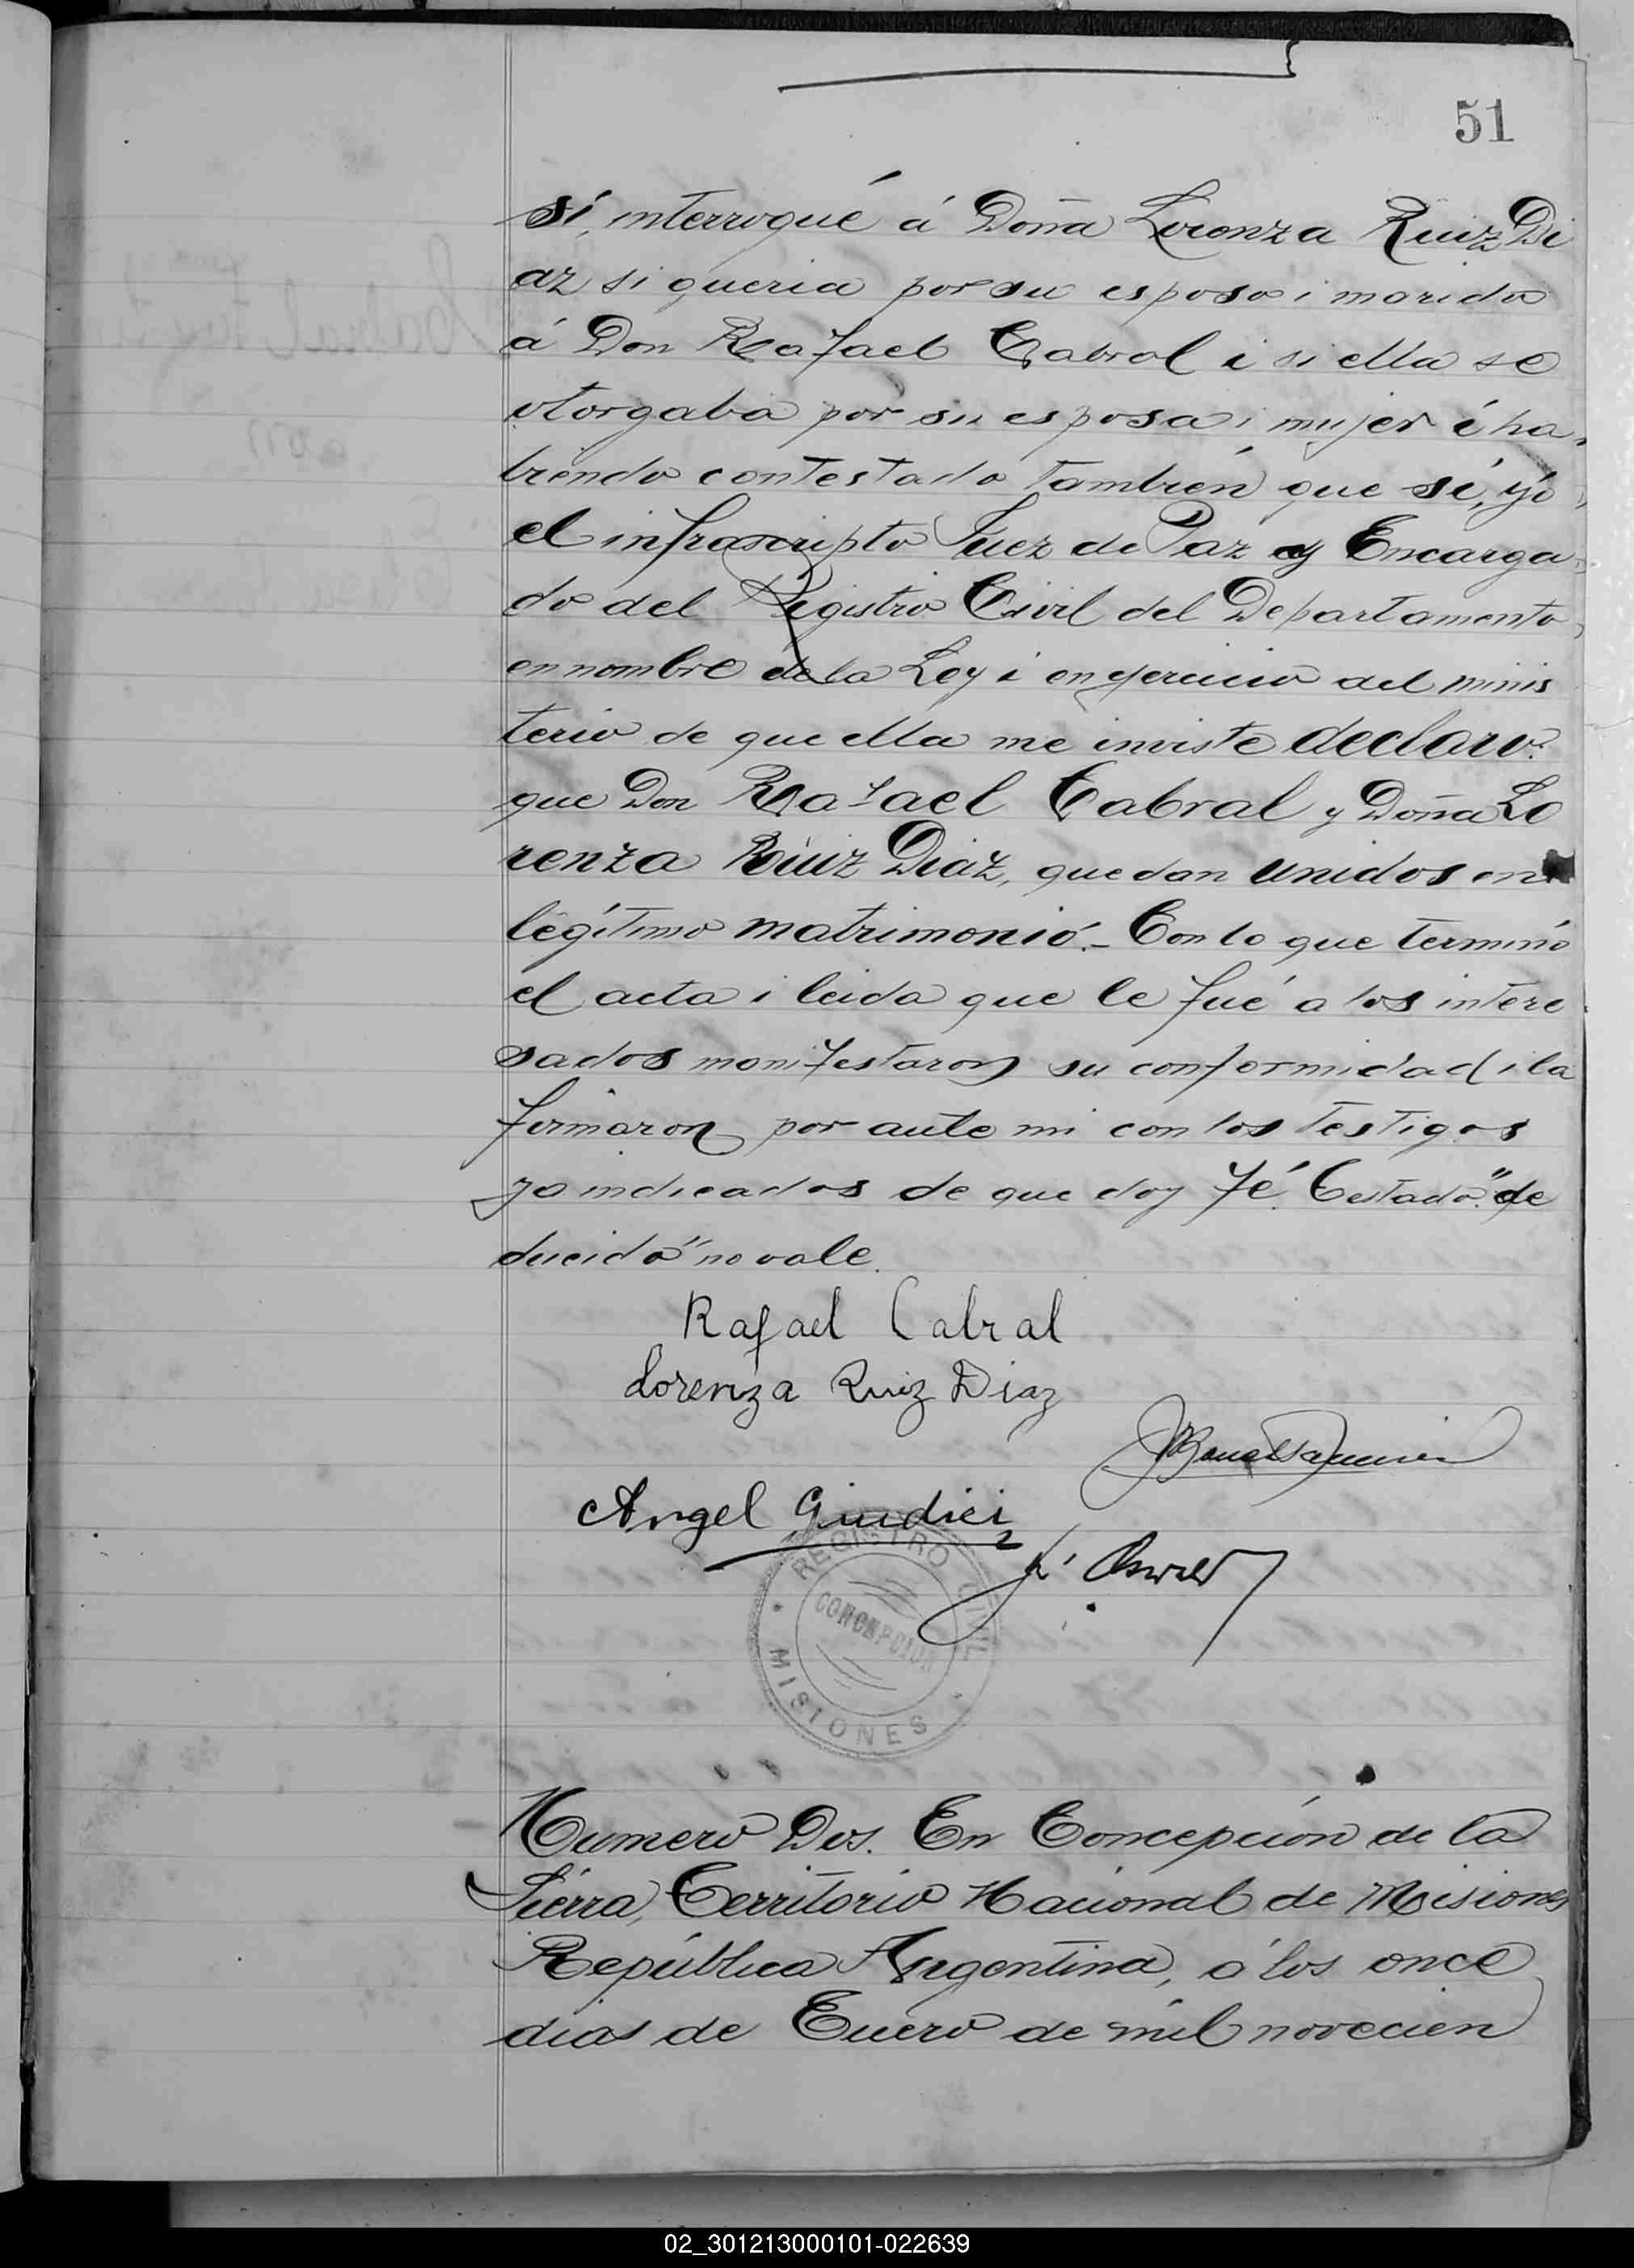 51
sí, interrogué á Doña Lorenza Ruiz Di
az si queria por su esposo i marido
á Don Rafael Cabral i si ella se
otorgaba por su esposa i mujer é ha-
biendo contestado también que sí, yo
el infrascripto Juez de Paz y Encarga
do del Registro Civil del Departamento,
en nombre de la Ley i en ejercicio del minis
terio de que ella me inviste declaro:
que Don Rafael Cabral y Doña Lo
renza Ruiz Diaz, quedan unidos en
legítimo matrimonió.- Con lo que terminó
el acta i leida que le fué a los intere
sados manifestaron su conformidad i la
firmaron por ante mi con los testigos
ya indicados de que doy fé. Testado: "de
ducido" no vale.
Rafael Cabral
Lorenza Ruiz Diaz
Angel Giudici
REGISTRO CIVIL
CONCEPCION
MISIONES
Numero Dos. En Concepción de la
Sierra, Territorio Nacional de Misiones
República Argentina, á los once
dias de Enero de mil novecien
02_301213000101-022639